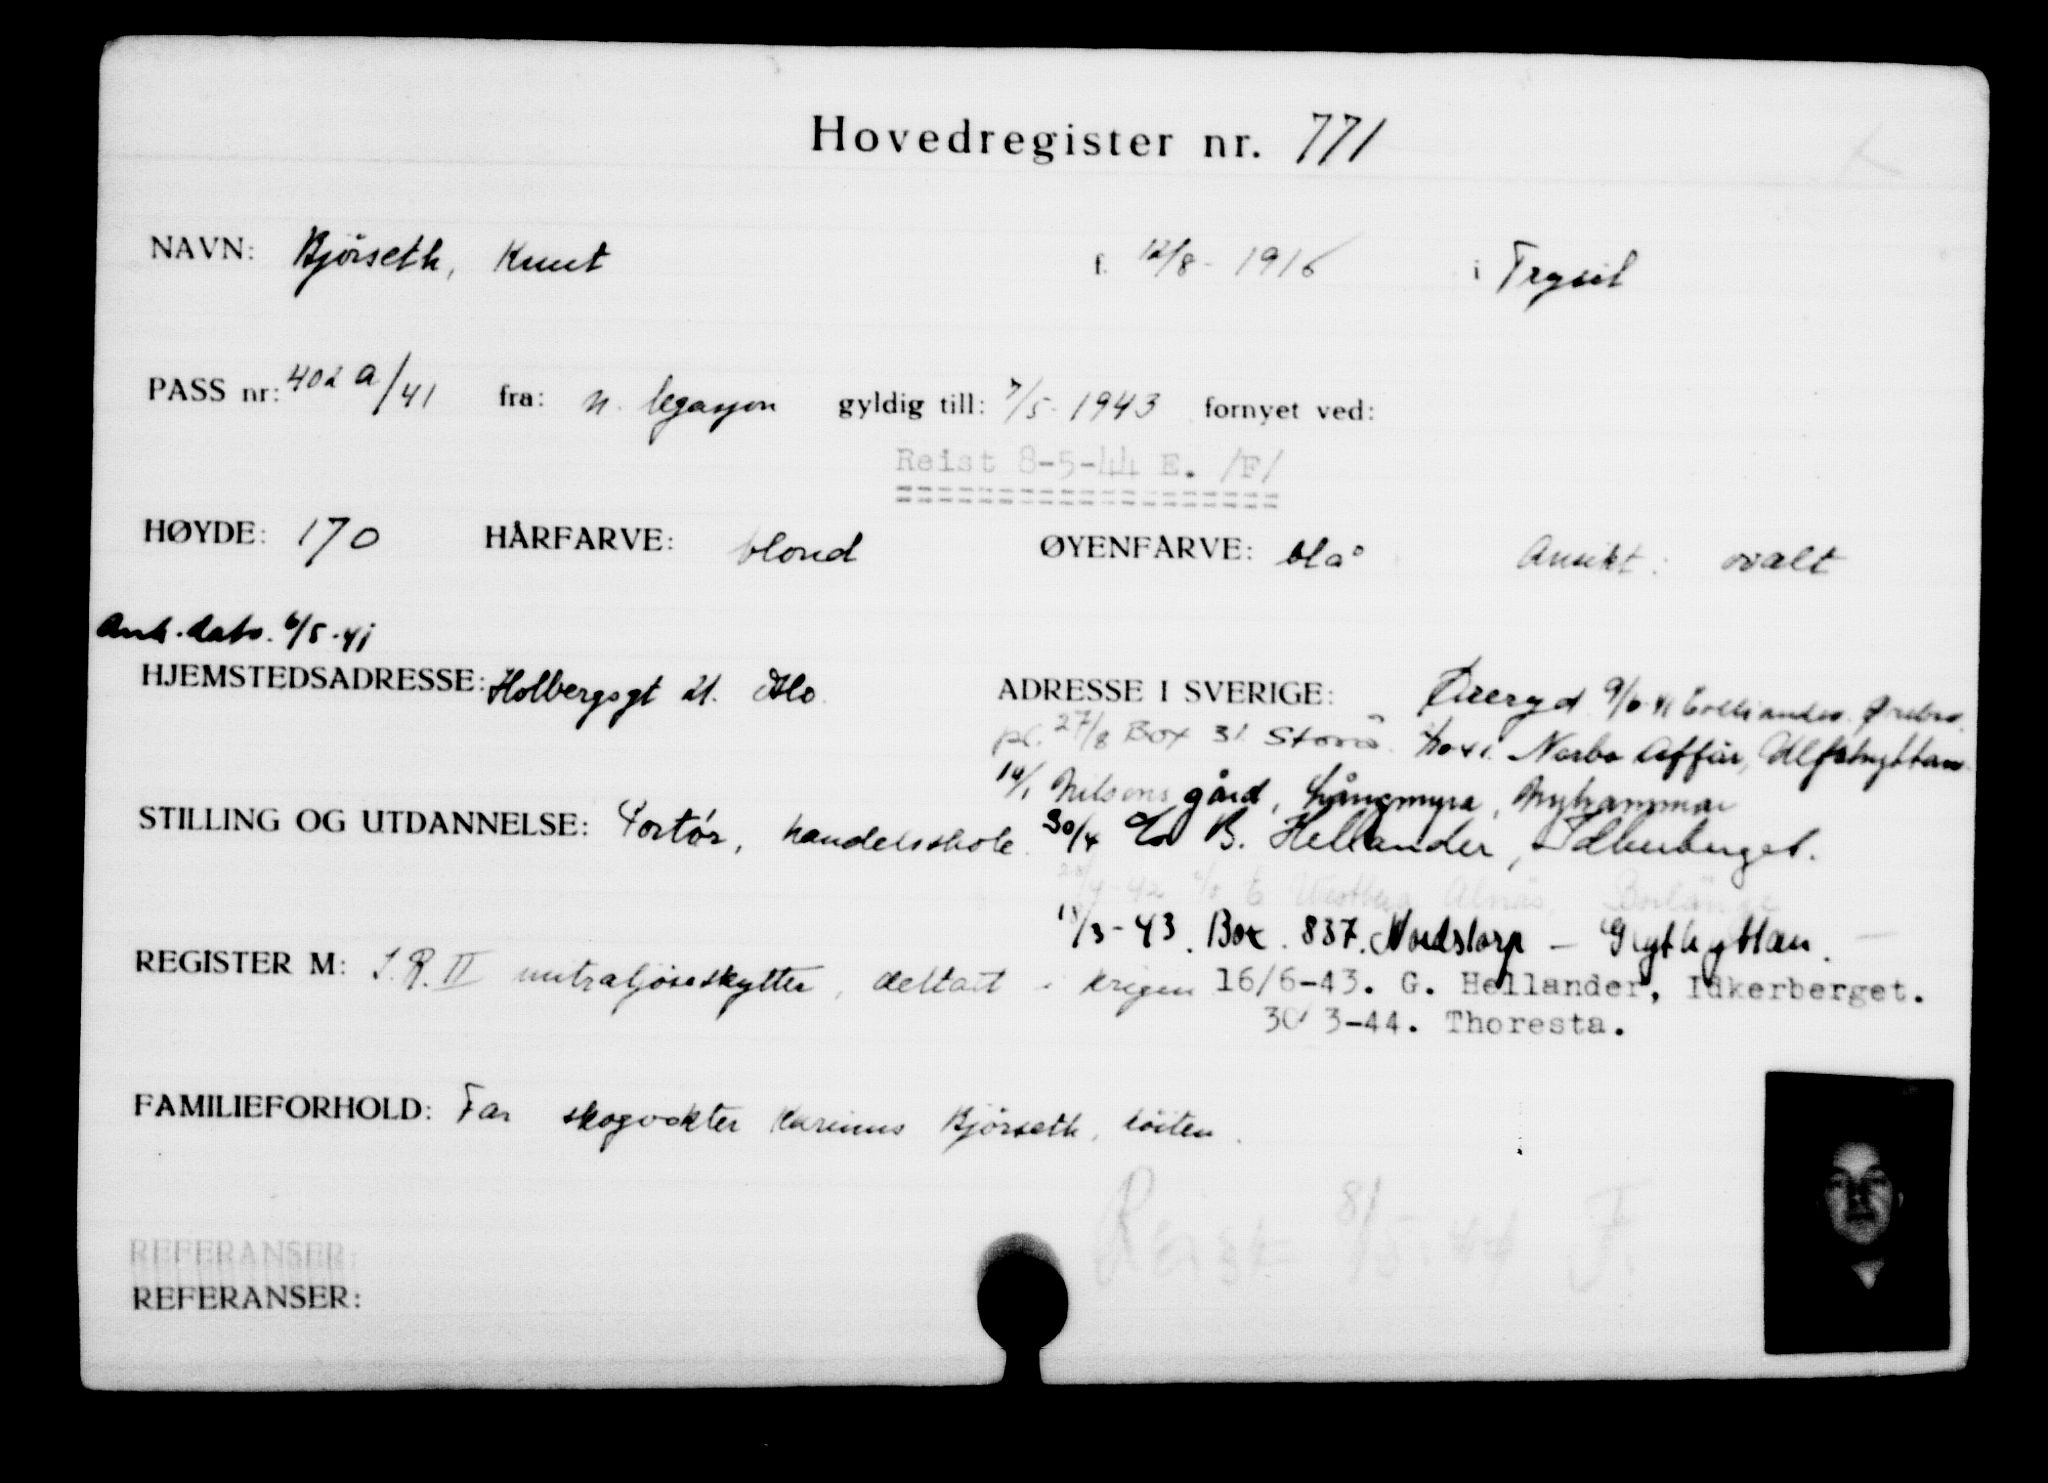 Hovedregister nr. 771
NAVN: Bjørseth, Knut f. 12/8 - 1916 i Trysil
PASS nr: 402 a/41 fra: n. legasjon gyldig till: 7/5 - 1943 fornyet ved:
Reist 8-5-44 E. /F/
HØYDE: 170 HÅRFARVE: blond ØYENFARVE: blå Ansikt: ovalt
Ank. dato. 6/5 - 41
HJEMSTEDSADRESSE: Holbergsgt 21. Oslo. ADRESSE I SVERIGE: Øreryd 9/6 41 Örebro.
27/8 Box 31 Storå. Norbo Affär, Ulfshyttan
14/1 Nilsons gård, Långmyra, Nyhammar
STILLING OG UTDANNELSE: Portør, handelsskole. 30/4 B. Hellander, Idkerberget.
4-42 c/o E Westberg Alnäs, Borlänge
18/3 - 43. Box. 837. Nordstorp - Grythyttan.
REGISTER M: I.R. II mitraljøseskytter, deltatt i krigen 16/6-43. G. Hellander, Idkerberget.
30/ 3-44. Thoresta.
FAMILIEFORHOLD: Far skogvokter Karinus Bjørseth, Löiten.
Reist 8/5-44 F.
REFERANSER:
REFERANSER: